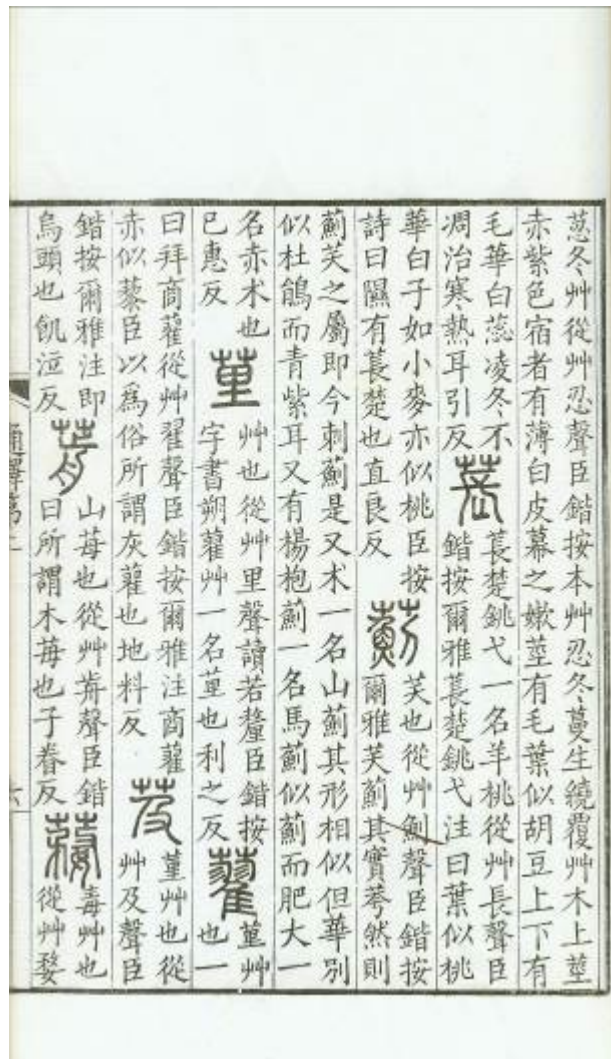 葱冬艸從艸忍聲臣鍇按本艸忍冬蔓生繞覆艸木上莖
赤紫色宿者有薄白皮幕之嫰莖有毛葉似胡豆上下有
毛華白蕊凌冬不
凋治寒熱耳引反
萇
萇楚銚弋一名羊桃從艸長聲臣
鍇按爾雅萇楚銚弋注曰葉似桃
華白子如小麥亦似桃臣按
詩曰隰有萇楚也直良反
薊
芺也從艸魝聲臣鍇按
爾雅芺薊其實荂然則
薊芺之屬即今刺薊是又术一名山薊其形相似但華別
似杜鵃而青紫耳又有楊抱薊一名馬薊似薊而肥大一
名赤术也
已惠反
荲
艸也從艸里聲讀若釐臣鍇按
字書朔藋艸一名荲也利之反
藋
堇艸
也一
曰拜商藋從艸翟聲臣鍇按爾雅注商藋
赤似藜臣以爲俗所謂灰藋也地料反
芨
堇艸也從
艸及聲臣
鍇按爾雅注即
烏頭也飢泣反
葥
山莓也從艸歬聲臣鍇
曰所謂木莓也子眷反
蓩
毒艸也
從艸婺
通釋第二
六